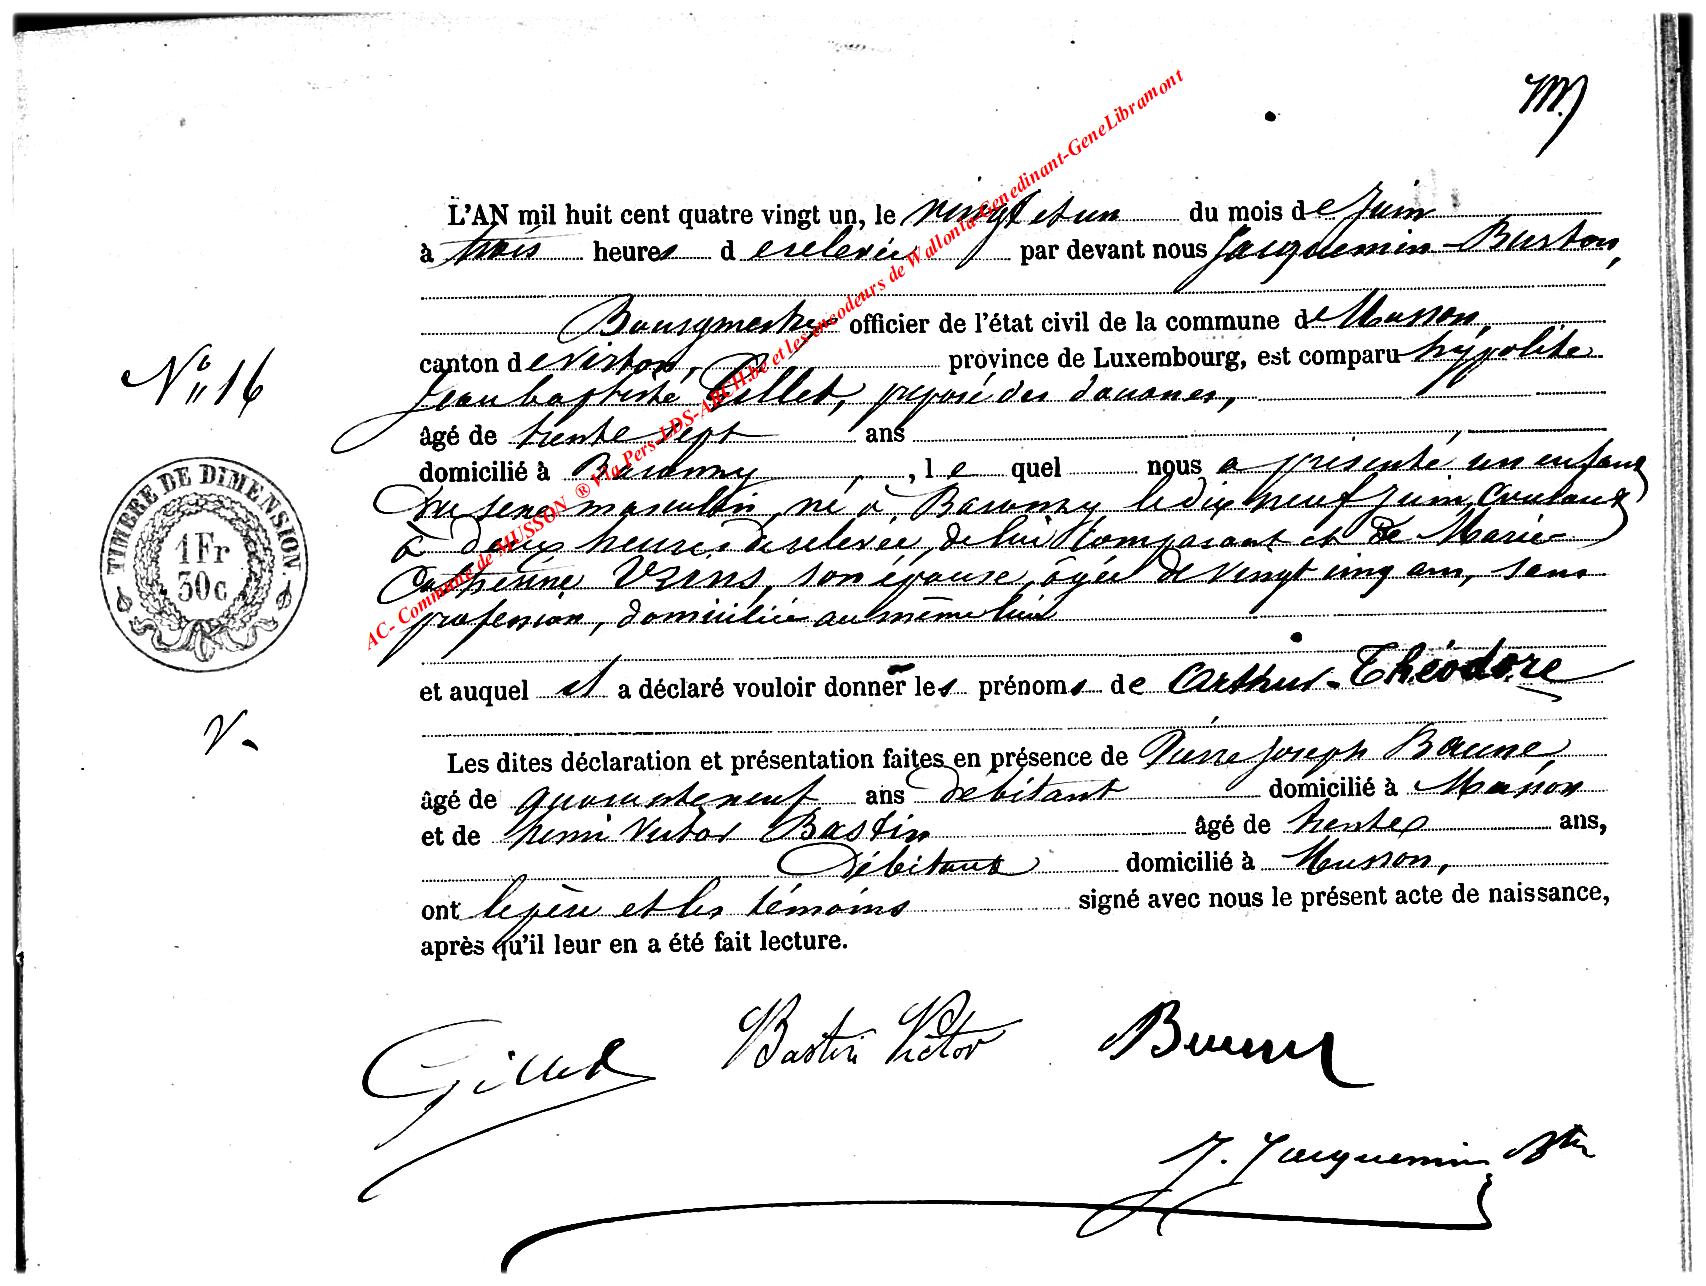 M
L'AN mil huit cent quatre vingt un, le vingt et un du mois de Juin
à trois heures d erelevée par devant nous Jacquemin-Burton,
Bourgmestre officier de l'état civil de la commune de Musson,
canton de Virton, province de Luxembourg, est comparu Hypolite
Nº 16
Jean baptiste Gillet, préposé des douanes,
âgé de trente sept ans
domicilié à Baranzy, le quel nous a présenté un enfant
du sexe masculin, né à Baranzy le dix neuf Juin Courant
à deux heures de relevée, de lui Comparant et de Marie-
Catherine Vzins, son épouse, âgée de vingt cinq ans, sans
profession, domiciliée au même lieu
et auquel il a déclaré vouloir donner les prénoms de Arthur-Théodore
V-
Les dites déclaration et présentation faites en présence de Pierre Joseph Baune,
âgé de quarante neuf ans débitant domicilié à Musson
et de henri Victor Bastin âgé de trente ans,
Débitant domicilié à Musson,
ont le père et les témoins signé avec nous le présent acte de naissance,
après qu'il leur en a été fait lecture.
TIMBRE DE DIMENSION
1 Fr
30 c.
Gillet Bastin Victor
J. Jacquemin Btn
AC- Commune de MUSSON ® Via Pers-LDS-ARCH.be et les encodeurs de Wallonia-Genedinant-GeneLibramont